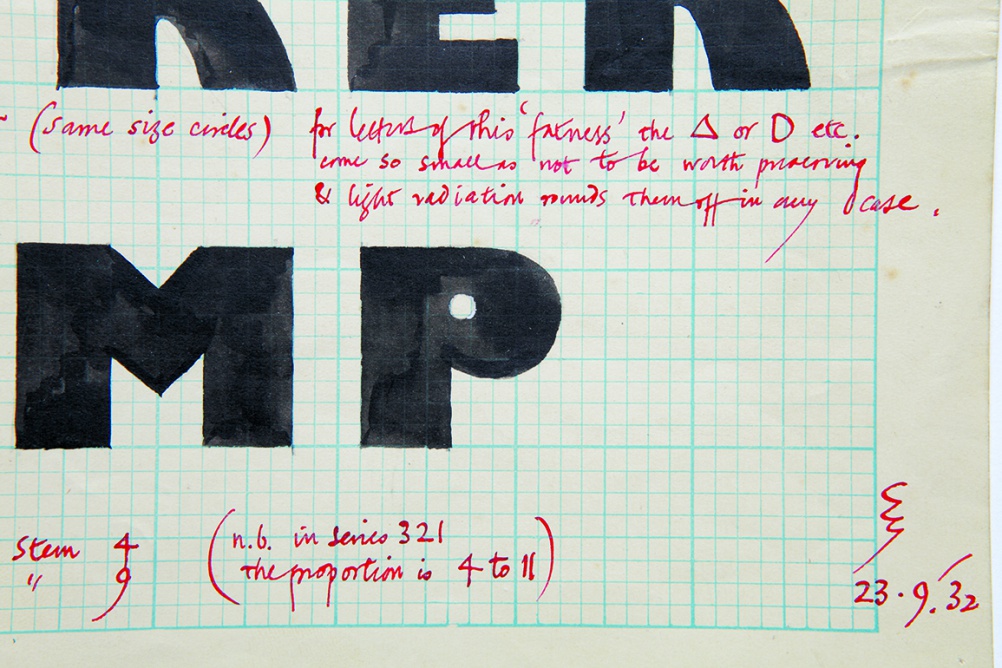 (same size circles) for letters of this 'fatness' the Δ or D etc.
come so small as not to be worth preserving
& light radiation rounds them off in any case.
MP
Stem 4 (n.b. in series 321
" 9 the proportion is 4 to 11)
23.9.32